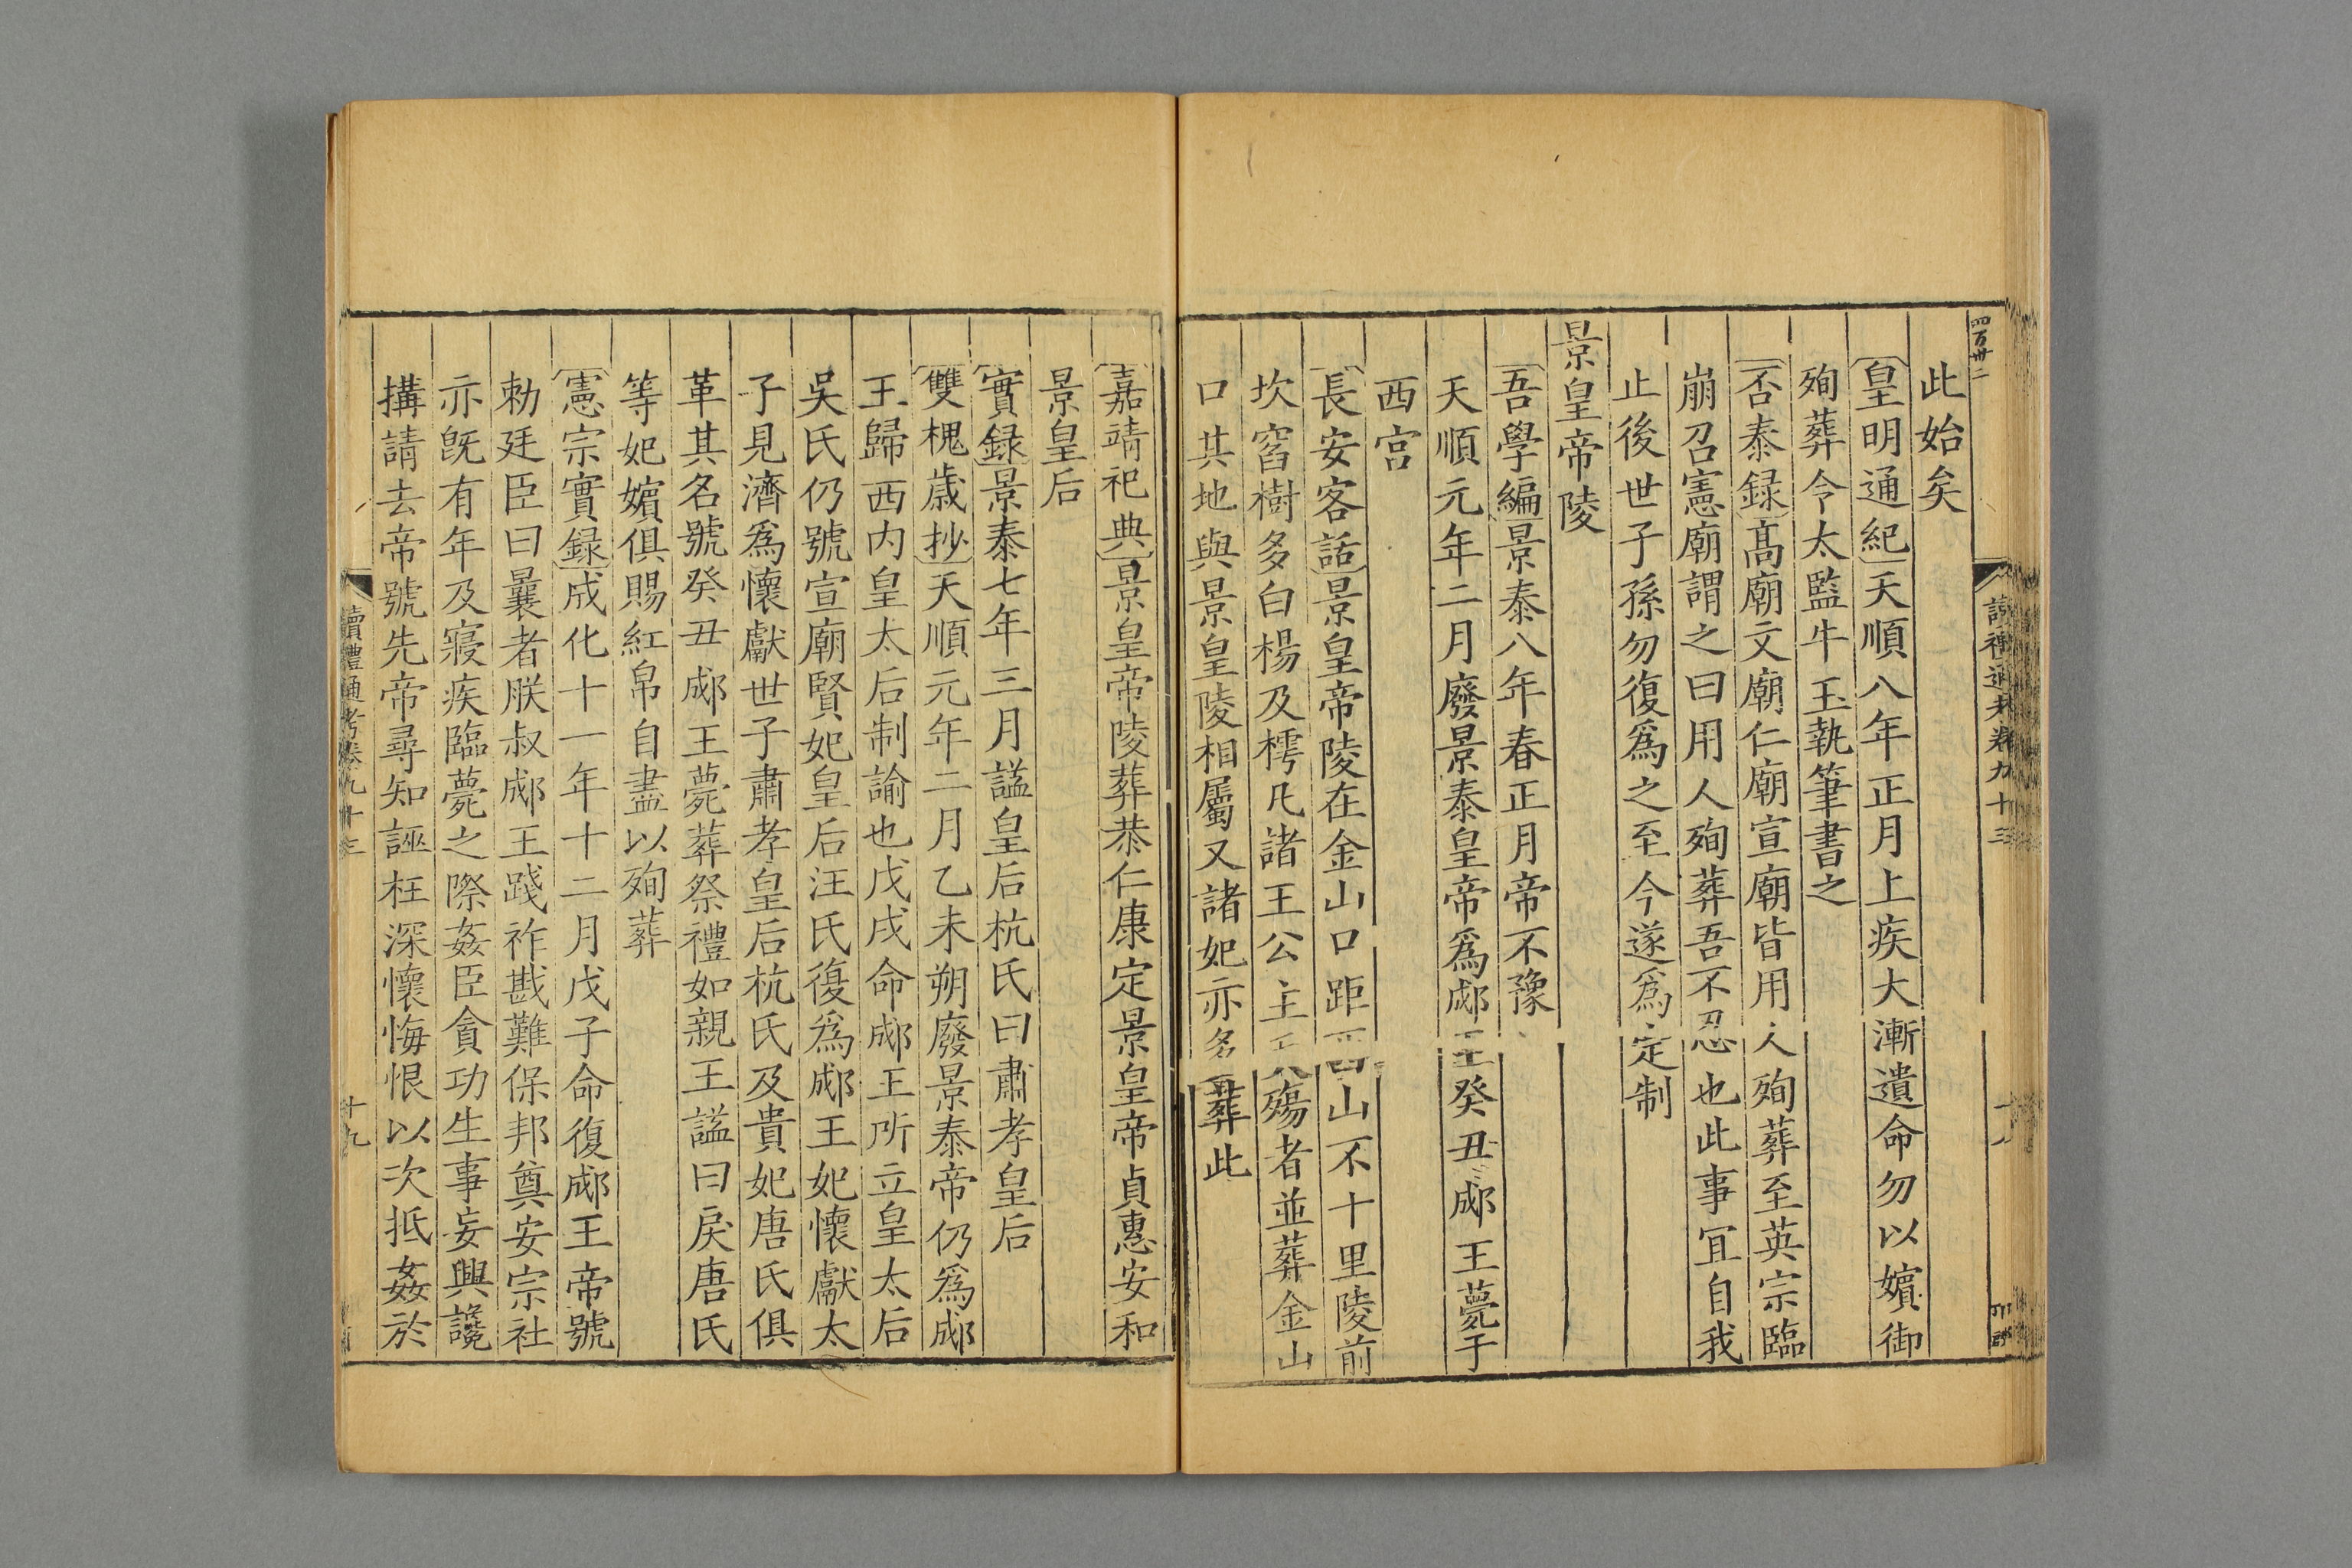 四百卅二
讀禮通考卷九十三
此始矣
皇明通紀天順八年正月上疾大漸遺命勿以嬪御
殉葬令太監牛玉執筆書之
否泰録髙廟文廟仁廟宣廟皆用人殉葬至英宗臨
崩召憲廟謂之曰用人殉葬吾不忍也此事冝自我
止後世子孫勿復爲之至今遂爲定制
景皇帝陵
吾學編景泰八年春正月帝不豫
天順元年二月廢景泰皇帝爲郕王癸丑郕王薨于
西宫
長安客話景皇帝陵在金山口距西山不十里陵前
坎窞樹多白楊及樗凡諸王公主夭殤者並葬金山
口其地與景皇陵相屬又諸妃亦多葬此
嘉靖祀典景皇帝陵葬恭仁康定景皇帝貞惠安和
景皇后
實録景泰七年三月謚皇后杭氏曰肅孝皇后
雙槐歳抄天順元年二月乙未朔廢景泰帝仍爲郕
王歸西内皇太后制諭也戊戌命郕王所立皇太后
吳氏仍號宣廟賢妃皇后汪氏復爲郕王妃懷獻太
子見濟爲懷獻世子肅孝皇后杭氏及貴妃唐氏俱
革其名號癸丑郕王薨葬祭禮如親王謚曰戾唐氏
等妃嬪俱賜紅帛自盡以殉葬
憲宗實録成化十一年十二月戊子命復郕王帝號
勅廷臣曰曩者朕叔郕王踐祚戡難保邦奠安宗社
亦旣有年及寢疾臨薨之際姦臣貪功生事妄興讒
搆請去帝號先帝尋知誣枉深懷悔恨以次抵姦於
讀禮通考卷九十三
十九